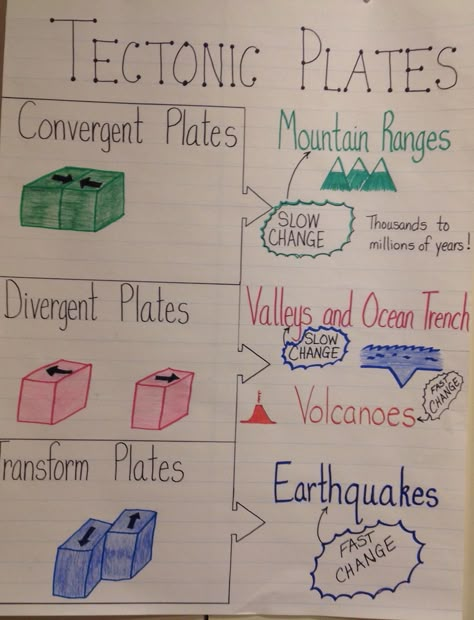 TECTONIC PLATES
Convergent Plates
Mountain Ranges
SLOW
CHANGE
Thousands to
millions of years!
Divergent Plates
Valleys and Ocean Trench
SLOW
CHANGE
FAST
CHANGE
Volcanoes
Transform Plates
Earthquakes
FAST
CHANGE